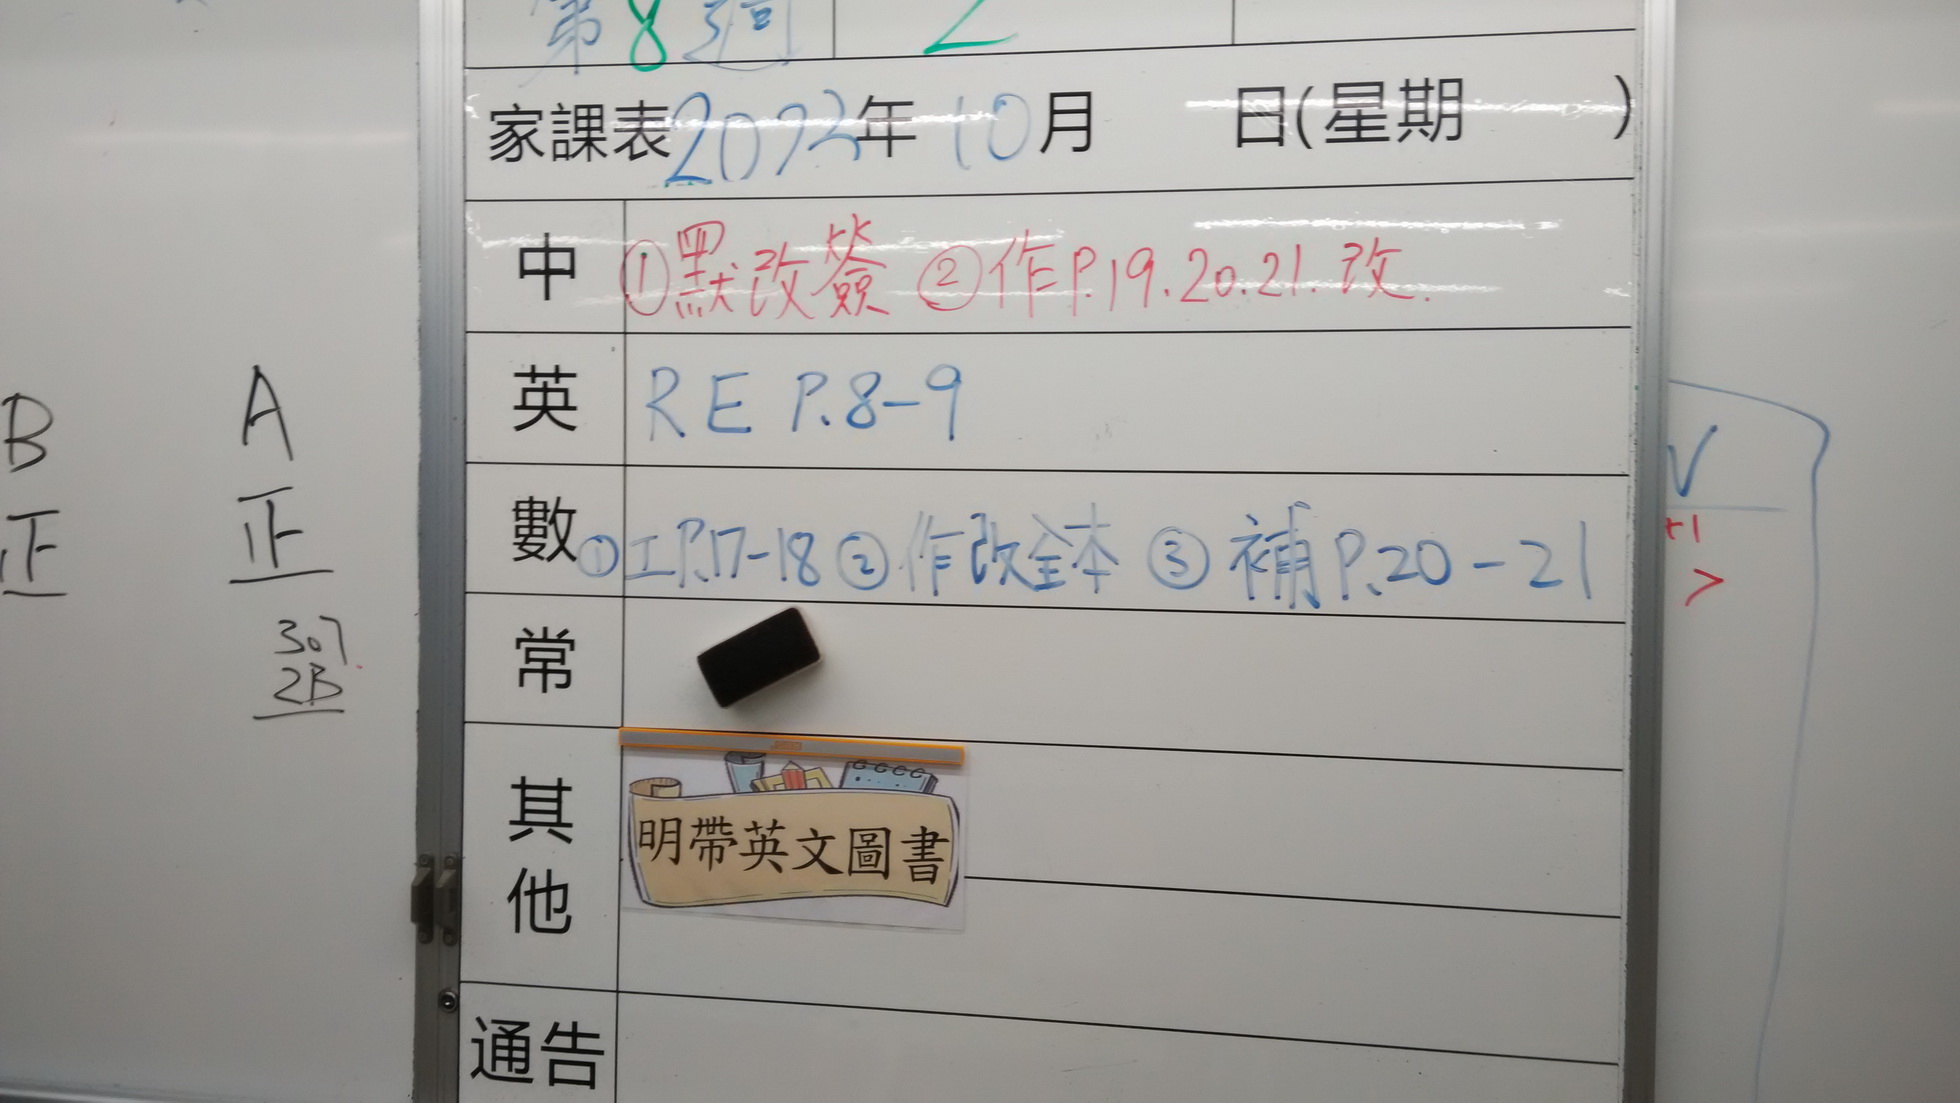 第8週 2
家課表2023年10月 日(星期 )
中 ①默改簽 ②作P.19.20.21.改.
英 RE P.8-9
數 ①工P.17-18 ②作改全本 ③補P.20-21
常
其他 明帶英文圖書
通告
B A
正 正
307
2B
V
+1
>